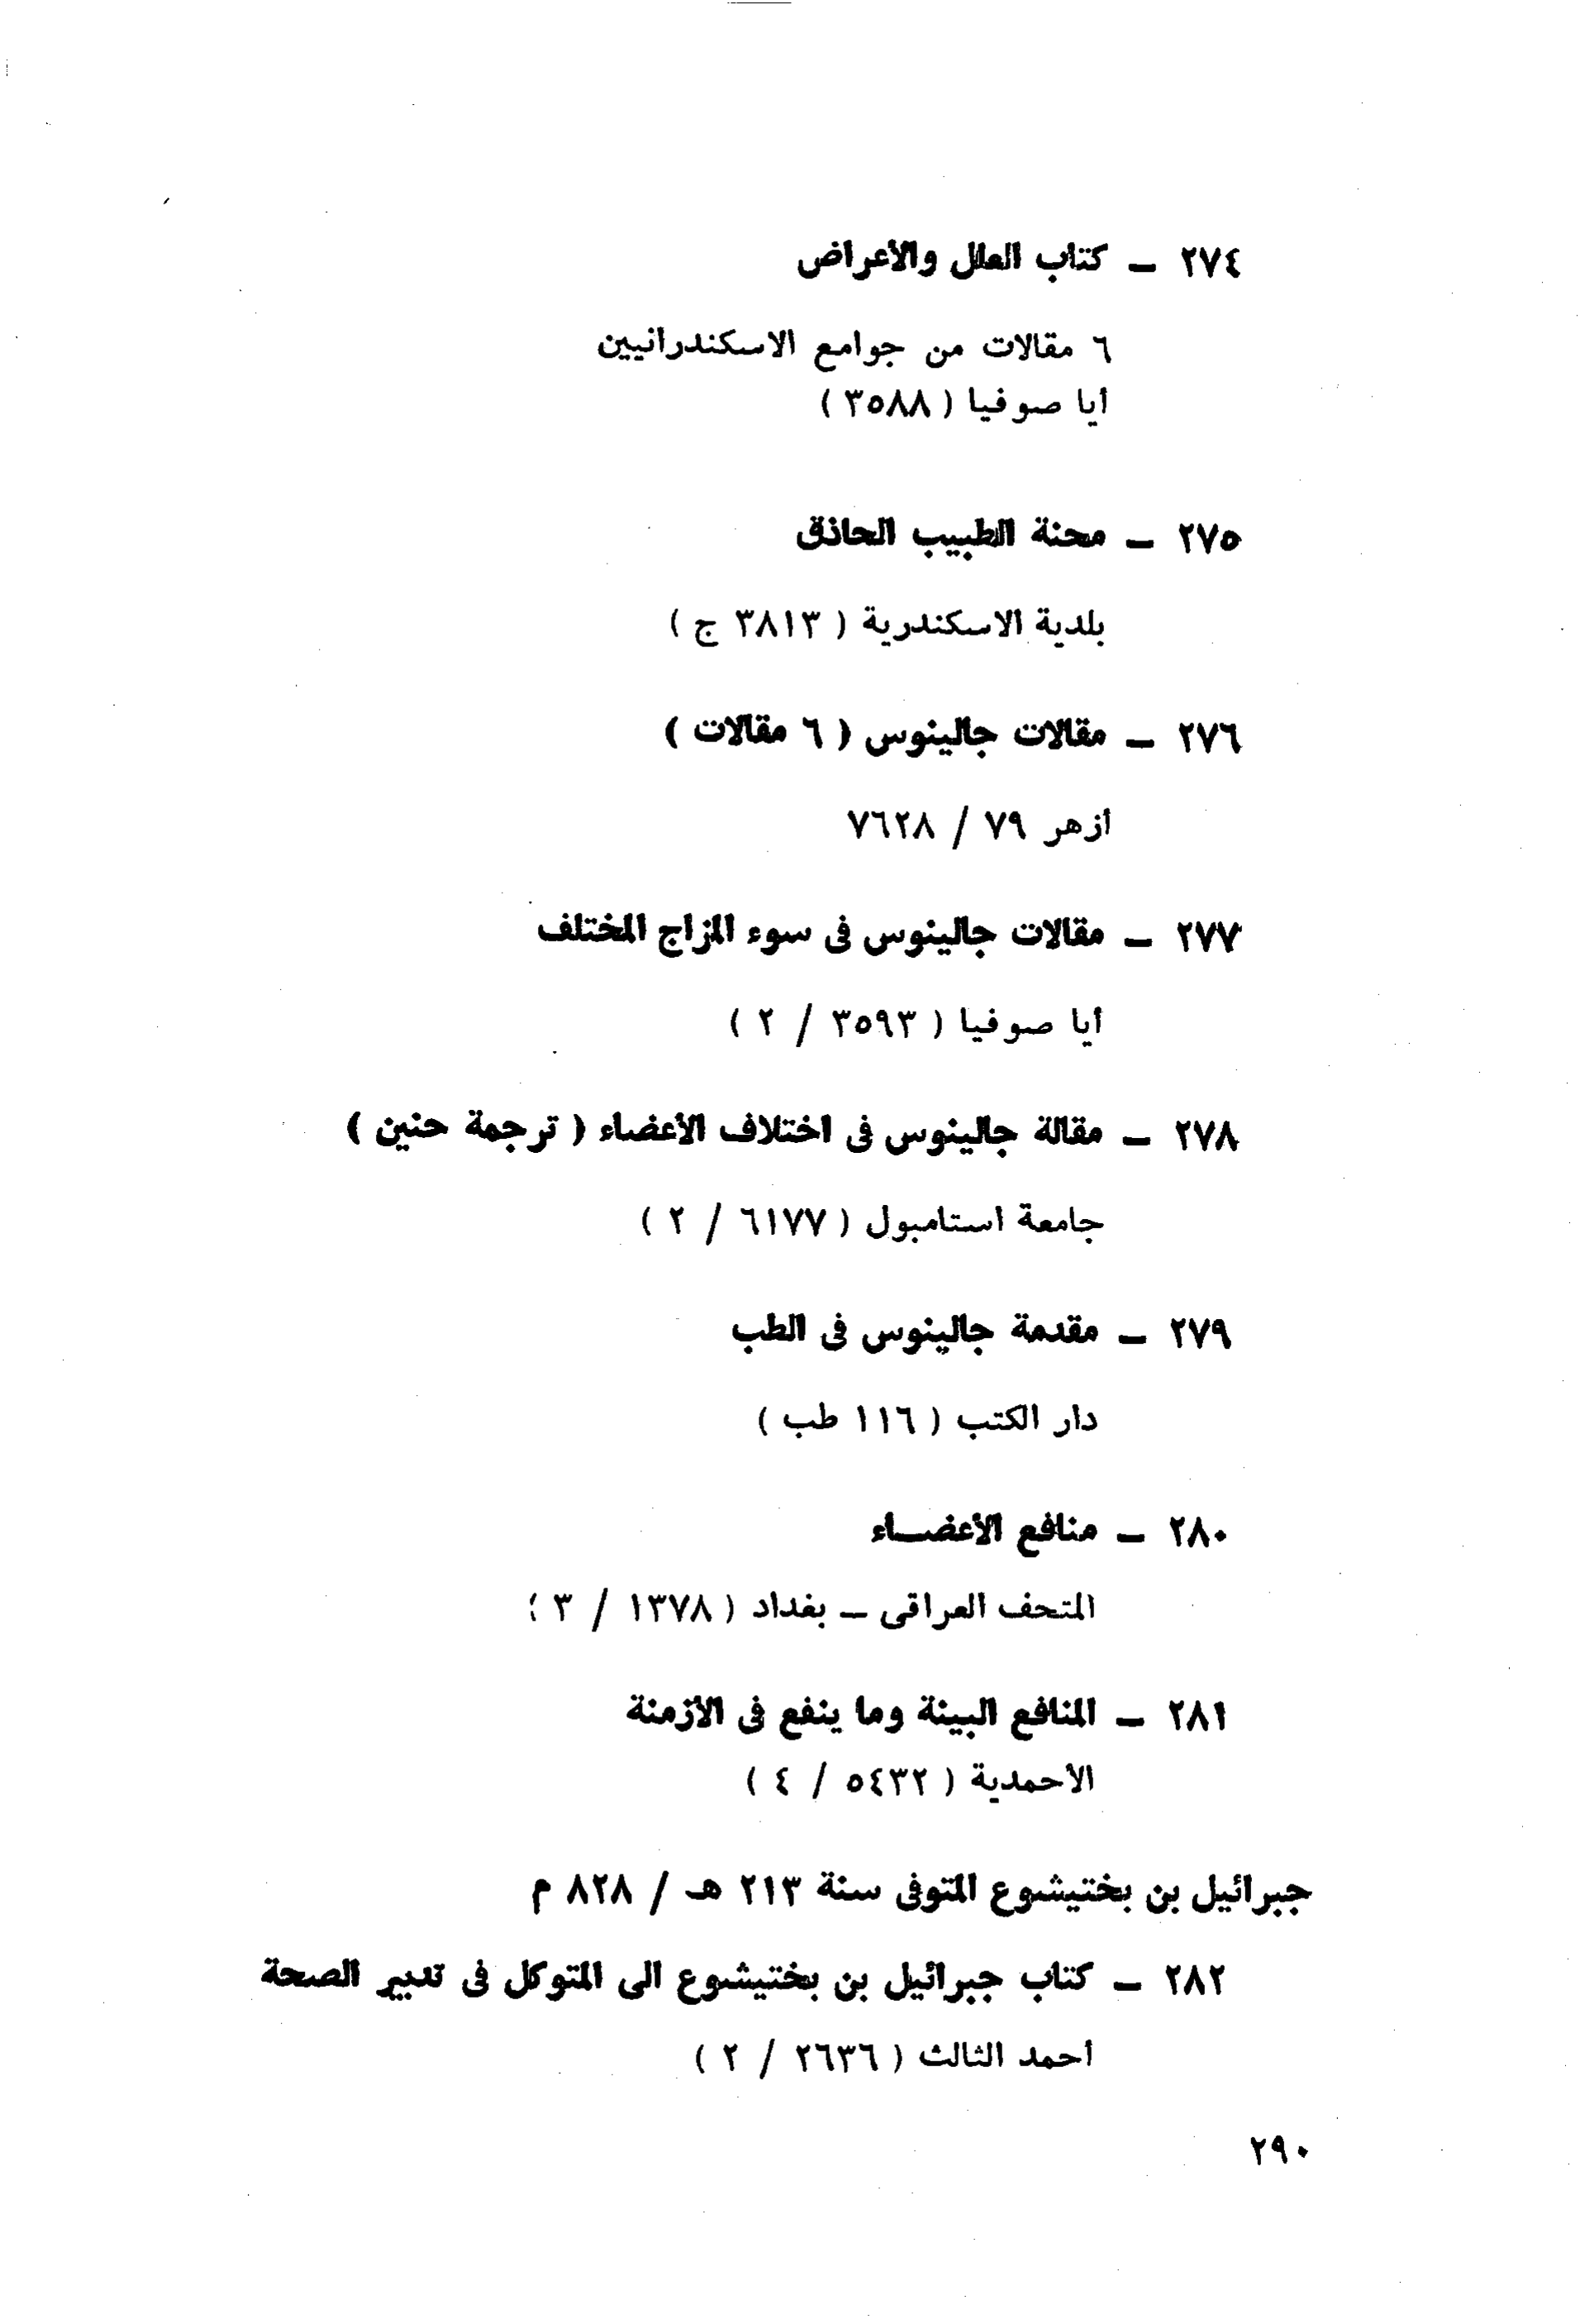 ٢٧٤ – كتاب العلل والأعراض
٦ مقالات من جوامع الاسكندرانيين
أيا صوفيا ( ٣٥٨٨ )
٢٧٥ – محنة الطبيب الحاذق
بلدية الاسكندرية ( ٣٨١٣ ج )
٢٧٦ – مقالات جالينوس ( ٦ مقالات )
أزهر ٧٩ / ٧٦٢٨
٢٧٧ – مقالات جالينوس فى سوء المزاج المختلف
أيا صوفيا ( ٣٥٩٣ / ٢ )
٢٧٨ – مقالة جالينوس فى اختلاف الأعضاء ( ترجمة حنين )
جامعة استامبول ( ٦١٧٧ / ٢ )
٢٧٩ – مقدمة جالينوس فى الطب
دار الكتب ( ١١٦ طب )
٢٨٠ – منافع الأعضــاء
المتحف العراقى – بغداد ( ١٣٧٨ / ٣ )
٢٨١ – المنافع البينة وما ينفع فى الأزمنة
الاحمدية ( ٥٤٣٢ / ٤ )
جبرائيل بن بختيشوع المتوفى سنة ٢١٣ هـ / ٨٢٨ م
٢٨٢ – كتاب جبرائيل بن بختيشوع الى المتوكل فى تدبير الصحة
أحمد الثالث ( ٢٦٣٦ / ٢ )
٢٩٠